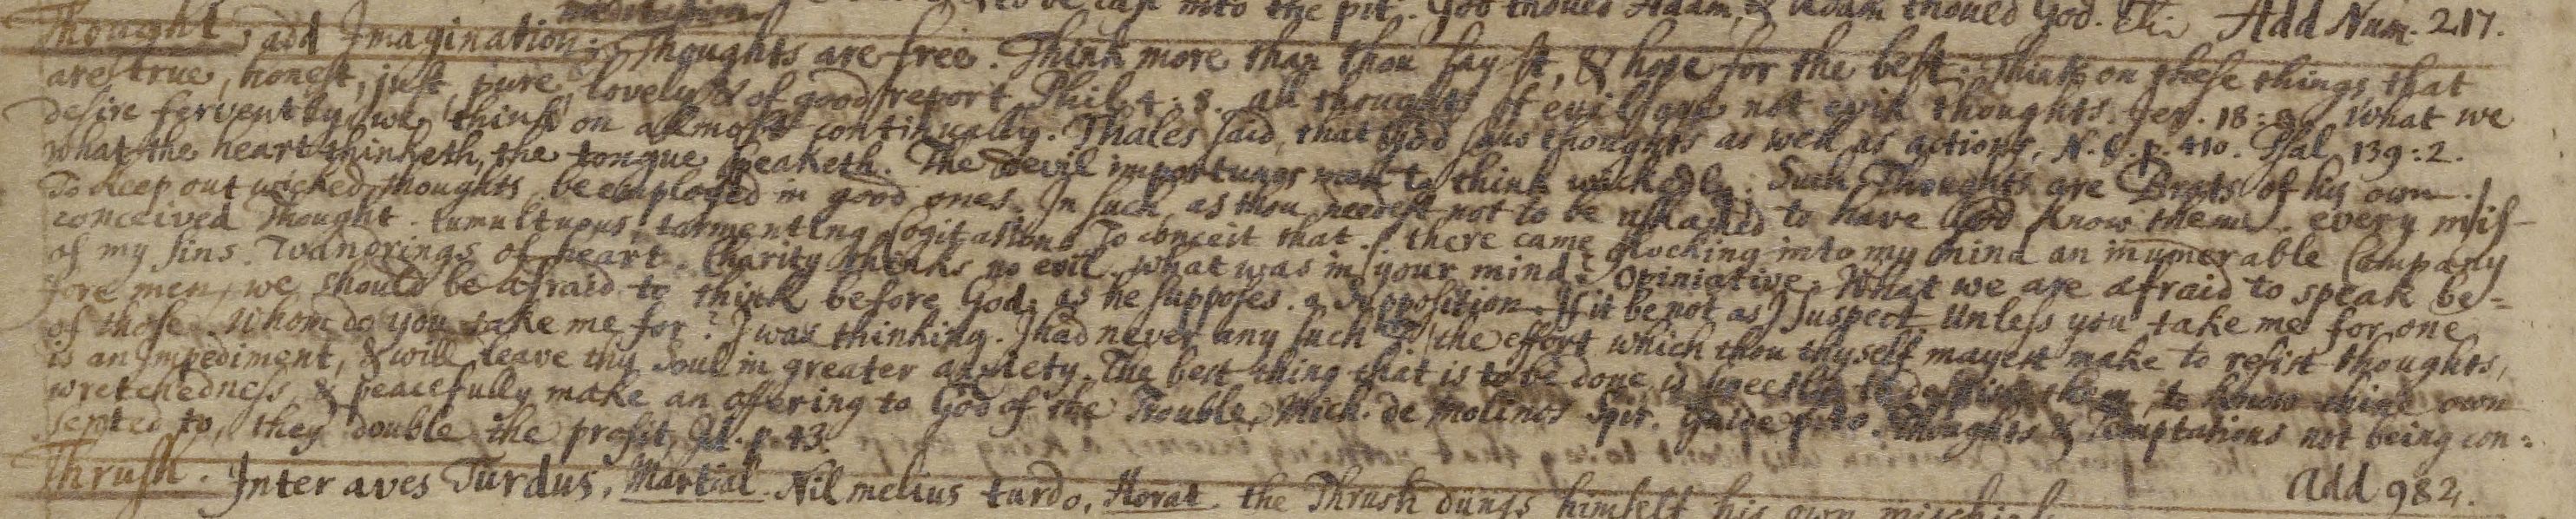 to be cast into the pit. God thoued Adam, & Adam thoued God. Add Num. 217.
Thought, add Imagination. meditation. Thoughts are free. Think more than thou say'st, & hope for the best. Think on these things, that
are true, honest, just, pure, lovely & of good report Phil. 4: 8. all thoughts of evil are not evil thoughts. Jer. 18: 8. What we
desire fervently, we think on allmost continually. Thales said, that God saw thoughts as well as actions, N. S. p. 410. Psal. 139: 2.
what the heart thinketh, the tongue speaketh. The Devil importunes men to think wickedly. Such Thoughts are Brats of his own.
To keep out wicked thoughts, be employed in good ones. In such, as thou needest not to be ashamed to have God know them. every mis-
conceived Thought. tumultuous, tormenting Cogitations. To conceit that. there came flocking into my mind an inumerable Company
of my sins. Wandrings of heart. Charity thinks no evil. What was in your mind? Opiniative. What we are afraid to speak be-
fore men, we should be afraid to think before God. as he supposes. a Supposition. If it be not as I suspect. Unless you take me for one
of those. Whom do you take me for? I was thinking. I had never any such the effort which thou thyself mayest make to resist thoughts,
is an Impediment, & will leave thy Soul in greater anxiety. The best thing that is to be done, is sweetly to despise them, to know thine own
wretchedness, & peacefully make an offering to God of the Trouble, Mich. de Molinos Spir. Guide Thoughts & Temptations not being con-
sented to, they double the profit, Id. p. 43.
Thrush. Inter aves Turdus, Martial. Nil melius turdo, Horat. the Thrush dungs himself his own mischief Add 982.